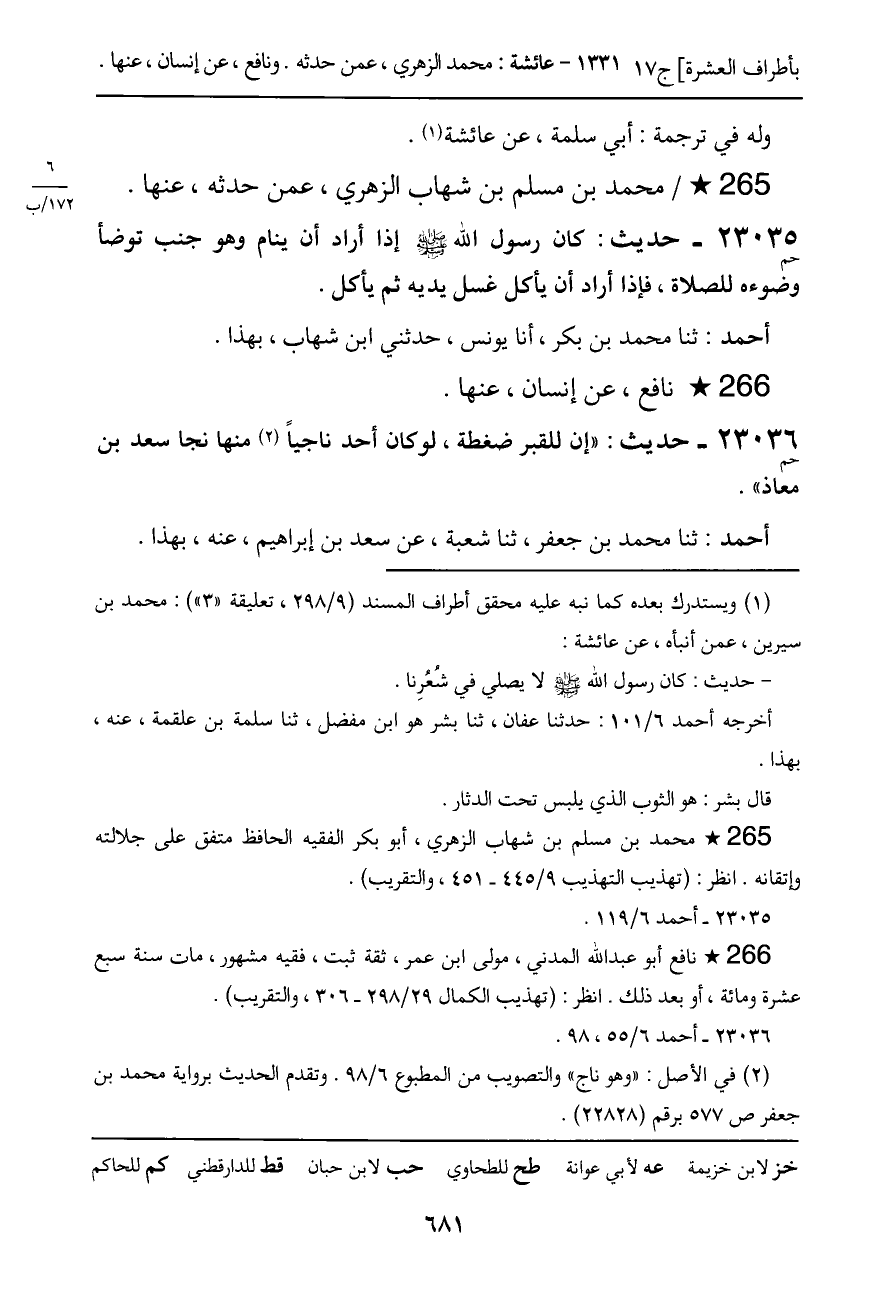 بأطراف العشرة] ج١٧ ١٣٣١ - عائشة : محمد الزهري ، عمن حدثه . ونافع ، عن إنسان ، عنها .
وله في ترجمة : أبي سلمة ، عن عائشة(١) .
٦
١٧٢/ب
265 ★ / محمد بن مسلم بن شهاب الزهري ، عمن حدثه ، عنها .
٢٣٠٣٥ ـ حديث : كان رسول الله ﷺ إذا أراد أن ينام وهو جنب توضأ
حم
وضوءه للصلاة ، فإذا أراد أن يأكل غسل يديه ثم يأكل .
أحمد : ثنا محمد بن بكر ، أنا يونس ، حدثني ابن شهاب ، بهذا .
266 ★ نافع ، عن إنسان ، عنها .
٢٣٠٣٦ ـ حديث : «إن للقبر ضغطة ، لوكان أحد ناجياً (٢) منها نجا سعد بن
حم
معاذ» .
أحمد : ثنا محمد بن جعفر ، ثنا شعبة ، عن سعد بن إبراهيم ، عنه ، بهذا .
(١) ويستدرك بعده كما نبه عليه محقق أطراف المسند (٢٩٨/٩ ، تعليقة «٣») : محمد بن
سيرين ، عمن أنبأه ، عن عائشة :
- حديث : كان رسول الله ﷺ لا يصلي في شُعُرِنا .
أخرجه أحمد ١٠١/٦ : حدثنا عفان ، ثنا بشر هو ابن مفضل ، ثنا سلمة بن علقمة ، عنه ،
بهذا .
قال بشر : هو الثوب الذي يلبس تحت الدثار .
265 ★ محمد بن مسلم بن شهاب الزهري ، أبو بكر الفقيه الحافظ متفق على جلالته
وإتقانه . انظر : (تهذيب التهذيب ٤٤٥/٩ ـ ٤٥١ ، والتقريب) .
٢٣٠٣٥ ـ أحمد ١١٩/٦ .
266 ★ نافع أبو عبدالله المدني ، مولى ابن عمر ، ثقة ثبت ، فقيه مشهور ، مات سنة سبع
عشرة ومائة ، أو بعد ذلك . انظر : (تهذيب الكمال ٢٩٨/٢٩ ـ ٣٠٦ ، والتقريب) .
٢٣٠٣٦ ـ أحمد ٥٥/٦ ، ٩٨ .
(٢) في الأصل : «وهو ناج» والتصويب من المطبوع ٩٨/٦ . وتقدم الحديث برواية محمد بن
جعفر ص ٥٧٧ برقم (٢٢٨٢٨) .
خز لابن خزيمة عه لأبي عوانة طح للطحاوي حب لابن حبان قط للدارقطني كم للحاكم
٦٨١